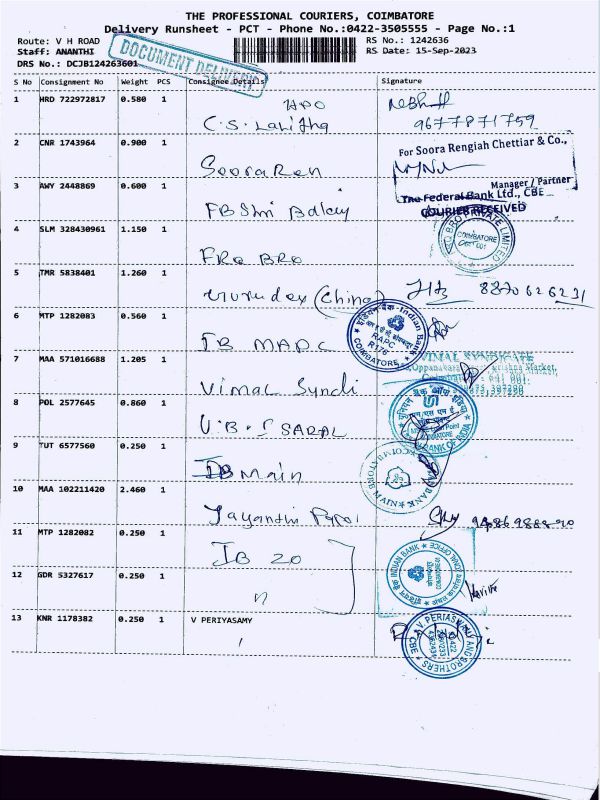 THE PROFESSIONAL COURIERS, COIMBATORE
Delivery Runsheet - PCT - Phone No.:0422-3505555 - Page No.:1
Route: V H ROAD RS No.: 1242636
Staff: ANANTHI RS Date: 15-Sep-2023
DRS No.: DCJB124263601
DOCUMENT DELIVERY
S No Consignment No Weight PCS Consignee Details Signature
1 HRD 722972817 0.580 1 HPO
C.S. Lalitha 9677871759
2 CNR 1743964 0.900 1
For Soora Rengiah Chettiar & Co.,
SooraRen
Manager / Partner
3 AWY 2448869 0.600 1
The Federal Bank Ltd., CBE
COURIER RECEIVED
FBShri
4 SLM 328430961 1.150 1
PRIVATE LIMITED
COIMBATORE
FRO BRO
5 TMR 5838401 1.260 1
(China) 8870626231
6 MTP 1282083 0.560 1
Indian Bank
RAPC
COIMBATORE
IB MAPC
7 MAA 571016688 1.205 1
VIMAL SYNDICATE
Vimal Syndi
8 POL 2577645 0.860 1
यूनियन बैंक ऑफ इंडिया
BANK OF INDIA
U.B.I SARAL
9 TUT 6577560 0.250 1
COIMBATORE MAIN
IB Main
10 MAA 102211420 2.460 1
Jayanthi
11 MTP 1282082 0.250 1
IB ZO
INDIAN BANK
12 GDR 5327617 0.250 1
"
13 KNR 1178382 0.250 1 V PERIYASAMY
V. PERIASWAMY AND BROTHERS
CBE